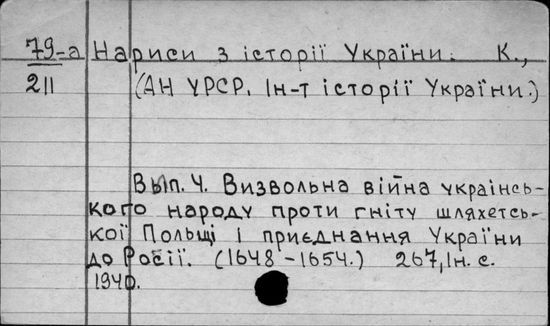 79-а Нариси з історії України. К.,
211 (АН УРСР. Ін-т історії України.)
Вып. 4. Визвольна війна українсь-
кого народу проти гніту шляхетсь-
кої Польщі і приєднання України
до Росії. (1648-1654.) 267,1н. с.
1940.